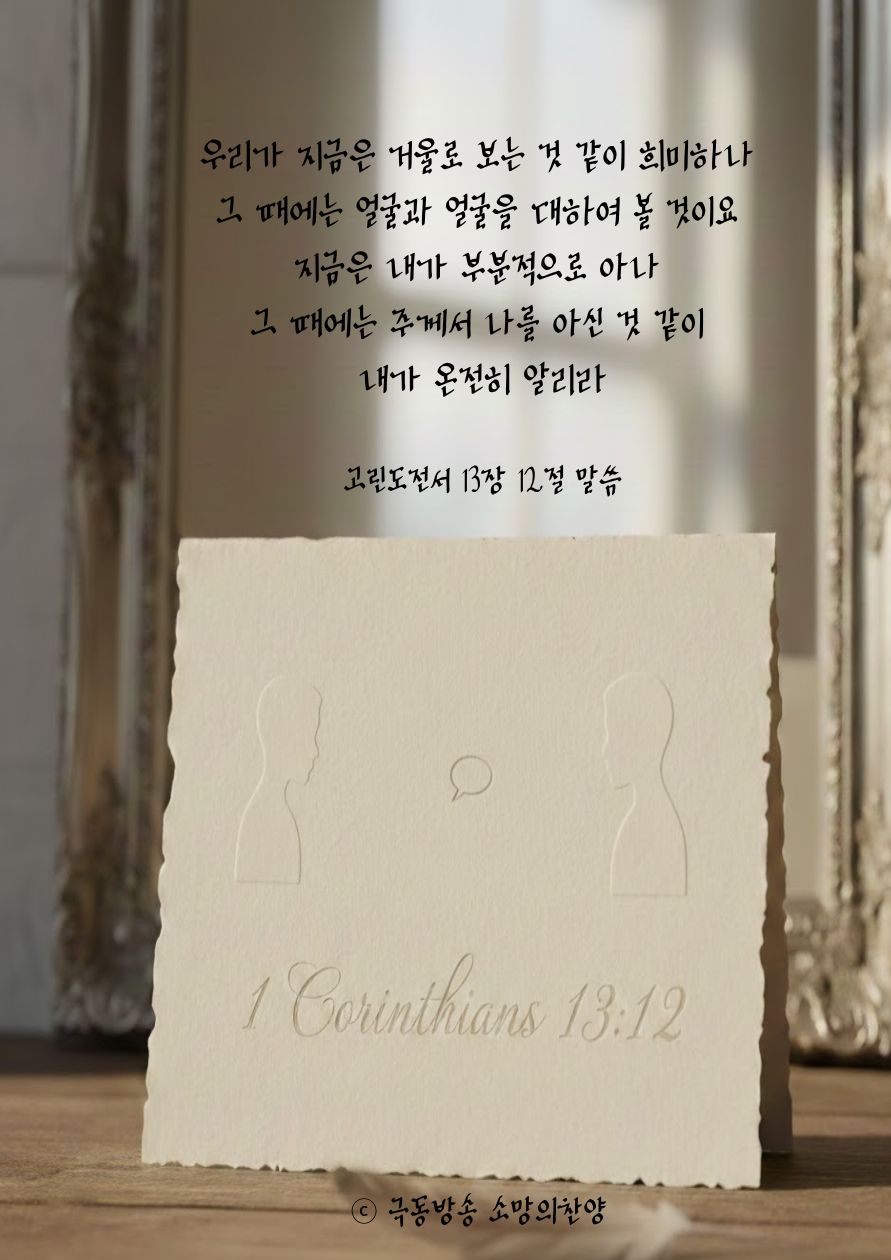 우리가 지금은 거울로 보는 것 같이 희미하나
그 때에는 얼굴과 얼굴을 대하여 볼 것이요
지금은 내가 부분적으로 아나
그 때에는 주께서 나를 아신 것 같이
내가 온전히 알리라
고린도전서 13장 12절 말씀
1 Corinthians 13:12
ⓒ 극동방송 소망의찬양